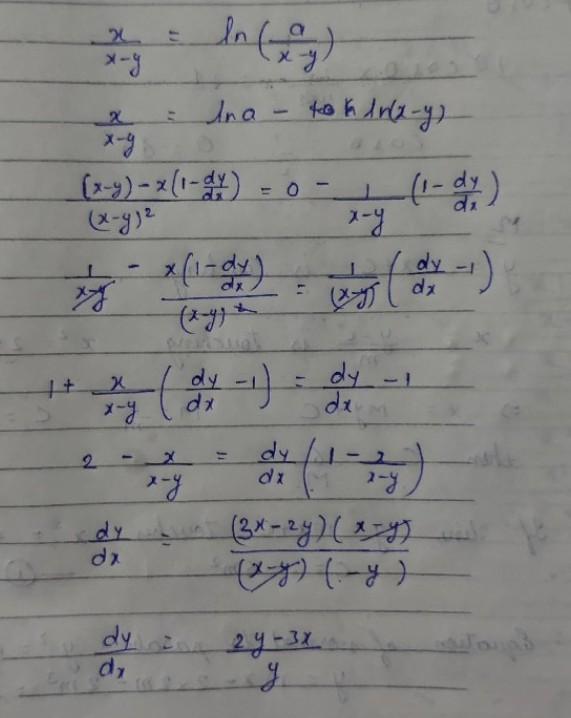 x/(x-y) = ln(a/(x-y))
x/(x-y) = ln a - ln(x-y)
((x-y) - x(1 - dy/dx))/(x-y)² = 0 - 1/(x-y) (1 - dy/dx)
1/(x-y) - x(1 - dy/dx)/(x-y)² = 1/(x-y) (dy/dx - 1)
1 + x/(x-y) (dy/dx - 1) = dy/dx - 1
2 - x/(x-y) = dy/dx (1 - x/(x-y))
dy/dx = (3x-2y)(x-y)/(x-y)(-y)
dy/dx = (2y-3x)/y